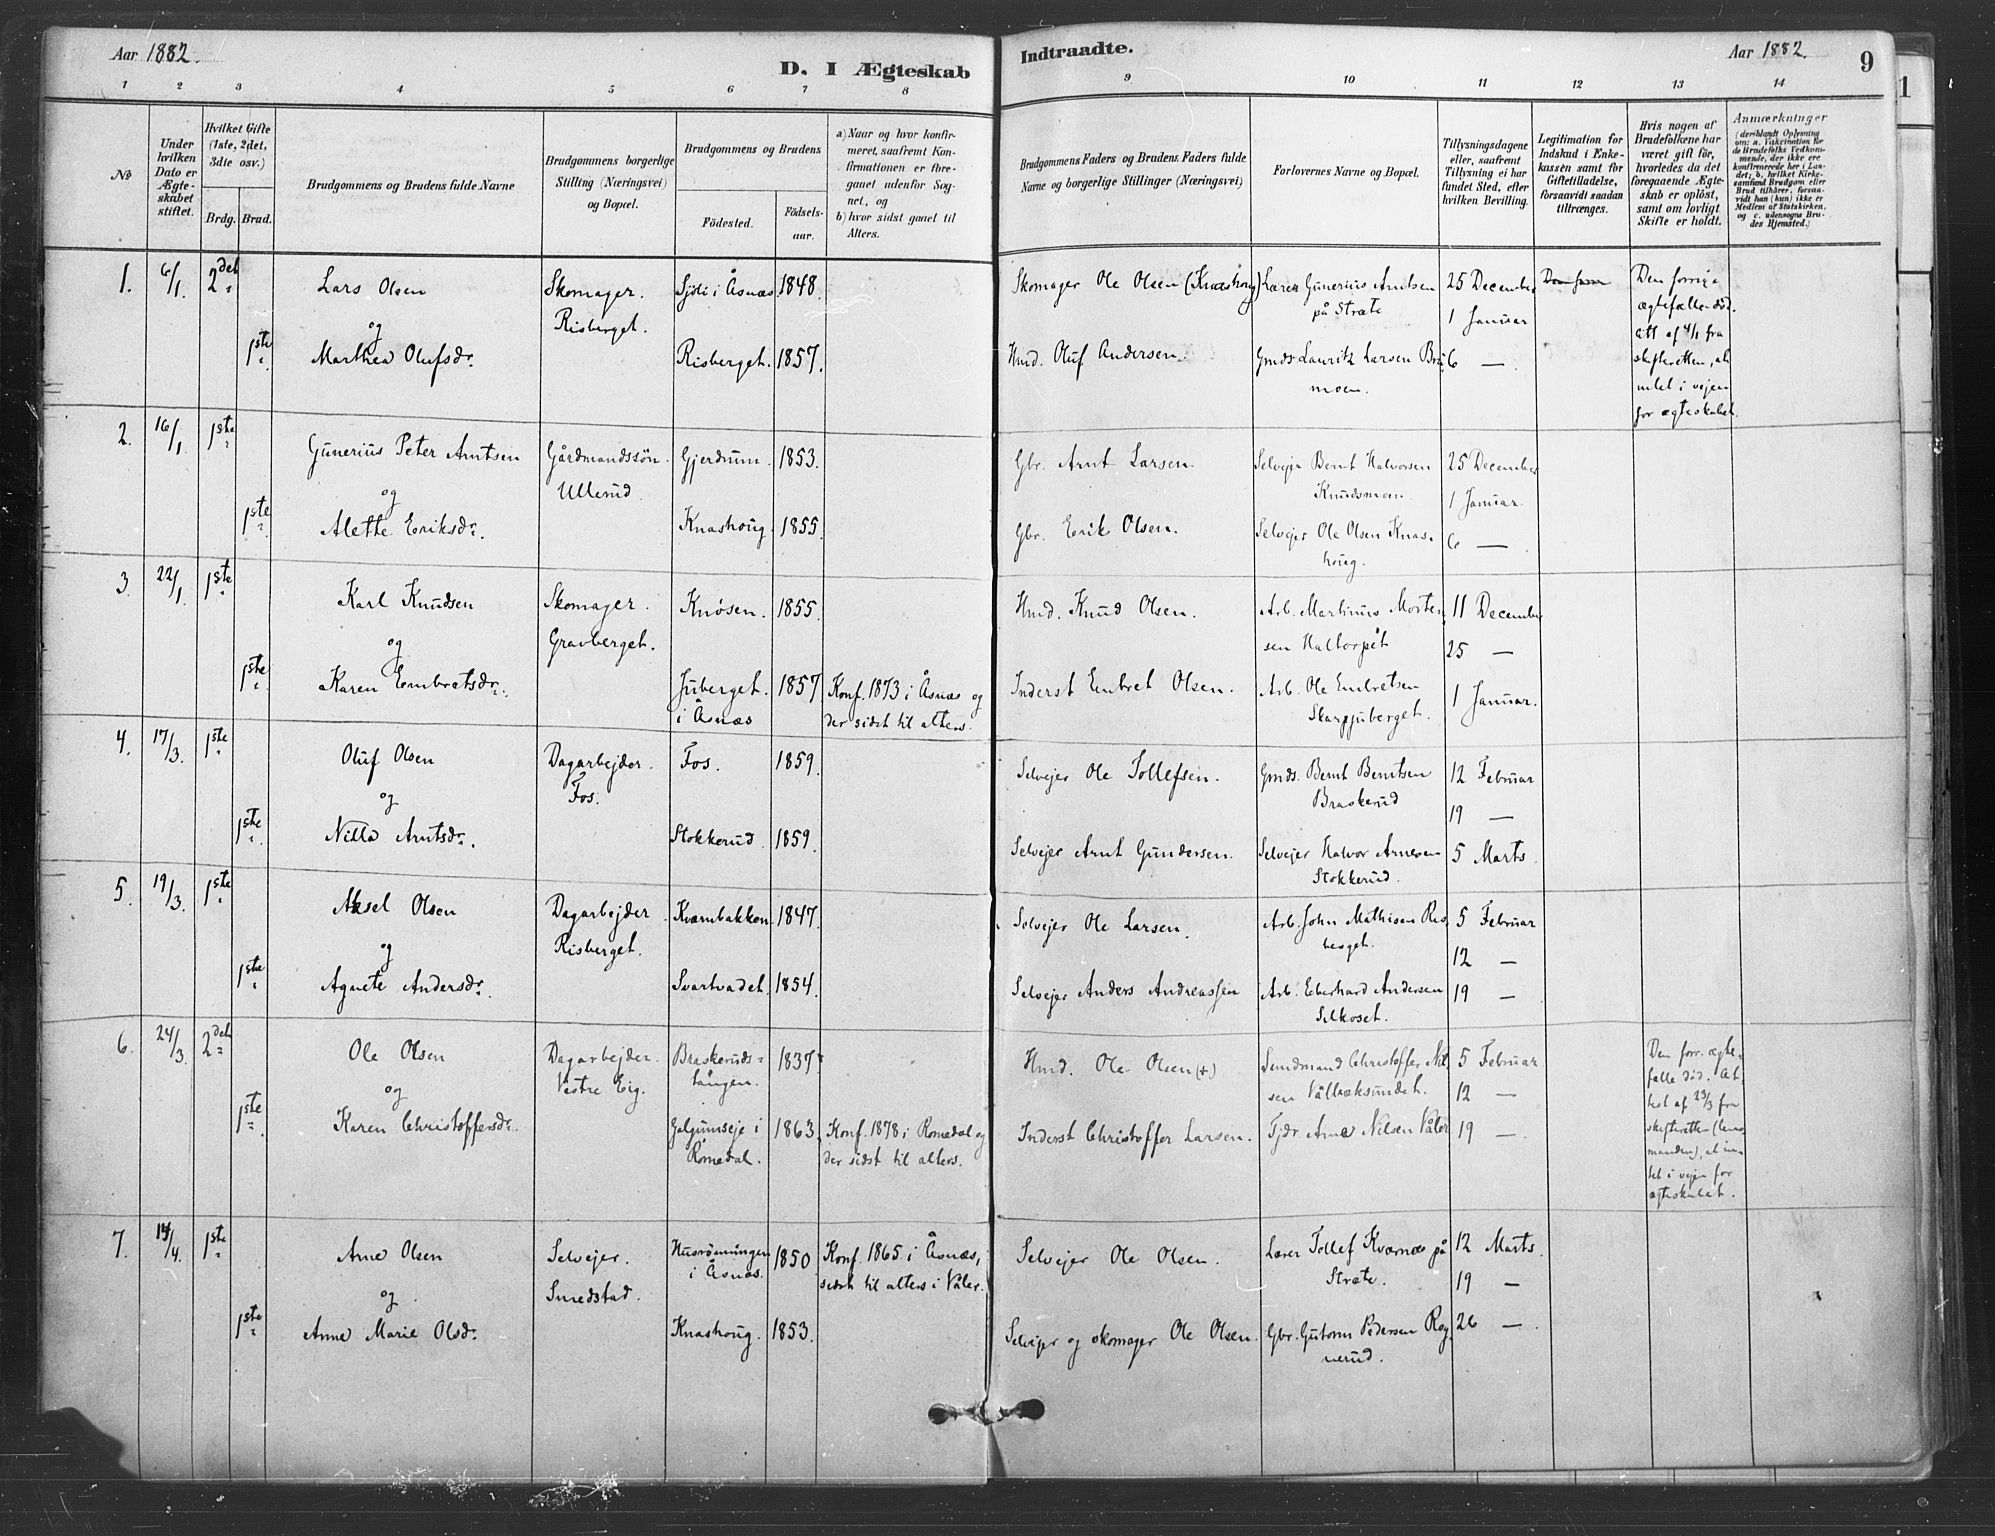 Aar 1882.
D. I Ægteskab
Indtraadte.
Aar 1882.
9
1 2 3 4 5 6 7 8 9 10 11 12 13 14
No
Under hvilken Dato er Ægteskabet stiftet.
Hvilket Gifte (1ste, 2det, 3die osv.)
Brdg. Brud.
Brudgommens og Brudens fulde Navne
Brudgommens borgerlige Stilling (Næringsvei) og Bopæl.
Brudgommens og Brudens
Fødested.
Fødselsaar.
a) Naar og hvor konfirmeret, saafremt Konfirmationen er foregaaet udenfor Sognet, og
b) hvor sidst gaaet til Alters.
Brudgommens Faders og Brudens Faders fulde Navne og borgerlige Stillinger (Næringsvei)
Forlovernes Navne og Bopæl.
Tillysningsdagene eller, saafremt Tillysning ei har fundet Sted, efter hvilken Bevilling.
Legitimation for Indskud i Enkekassen samt for Giftetilladelse, forsaavidt saadan tiltrænges.
Hvis nogen af Brudefolkene har været gift før, hvorledes da det foregaaende Ægteskab er opløst, samt om lovligt Skifte er holdt.
Anmærkninger (deriblandt Oplysning om: a. Vaksination for de Brudefolks Vedkommende, der ikke ere konfirmerede her i Landet; b. hvilket Kirkesamfund Brudgom eller Brud tilhører, forsaavidt han (hun) ikke er Medlem af Statskirken, og c. udensogns Brudes Hjemsted.)
1. 6/1. 2det Lars Olsen Skomager. Sjöli i Åsnæs. 1848. Skomager Ole Olsen (Knashoug) Lærer Gunerius Arntsen 25 December Den forrige
og Risberget. på Stræte 1 Januar ægtefælle död.
1ste Marthea Olufsdr. Risberget. 1857. Hmd. Oluf Andersen. Gmds. Lauritz Larsen 6 — Att af 4/1 fra
moen. skifteretten, at
intet i vejen
for ægteskabet.
2. 16/1. 1ste Gunerius Peter Arntsen Gårdmandssön. Gjerdrum. 1853. Gbr. Arnt Larsen. Selvejer Bernt Halvorsen 25 December
og Ullerud. Knudsmoen. 1 Januar.
1ste Alette Eriksdr. Knashoug. 1855. Gbr. Erik Olsen. Selvejer Ole Olsen Knas- 6 —
houg.
3. 22/1. 1ste Karl Knudsen Skomager. Knösen. 1855. Hmd. Knud Olsen. Arb. Martinius Morten- 11 December
og Gravberget. sen Haltorpet 25 —
1ste Karen Embretsdr. Juberget. 1857 Konf. 1873 i Åsnæs og Inderst Embret Olsen. Arb. Ole Embretsen 1 Januar.
i Åsnæs der sidst til alters. Skarpjuberget.
4. 17/3. 1ste Oluf Olsen Dagarbejder. Fos. 1859. Selvejer Ole Tollefsen. Gmds. Bernt Berntsen 12 Februar
og Fos. Braskerud 19 —
1ste Nilla Arntsdr. Stokkerud. 1859. Selvejer Arnt Gundersen. Selvejer Halvor Arnesen 5 Marts.
Stokkerud.
5. 19/3. 1ste Aksel Olsen Dagarbejder Kværnbakken 1847. Selvejer Ole Larsen. Arb. John Mathisen Ris- 5 Februar
og Risberget. berget. 12 —
1ste Agnete Andersdr. Svartvadet. 1854. Selvejer Anders Andreassen Arb. Eberhard Andersen 19 —
Silkoset.
6. 24/3. 2det Ole Olsen Dagarbejder. Braskeruds- 1837. Hmd. Ole Olsen (+) Christoffer Nil- 5 Februar. Den forr. ægte-
og Vestre Eig. tången. sen 12 — fælle död. At-
1ste Karen Christoffersdr. i 1863. Konf. 1878 i Romedal og Inderst Christoffer Larsen. Arne Nilsen Våler 19 — test af 23/3 fra
Romedal. der sidst til alters. skifteretten (lens-
manden), at in-
tet i vejen for
ægteskabet.
7. 14/4. 1ste Arne Olsen Selvejer. Husrömningen 1850 Konf. 1865 i Åsnæs, Selvejer Ole Olsen. Lærer Tollef Kværnæs på 12 Marts.
og Smedstad. i Åsnæs. sidst til alters i Våler. Stræte. 19 —
1ste Anne Marie Olsdr. Knashoug. 1853. Selvejer og skomager Ole Olsen. Gbr. Gutorm Pedersen 26 —